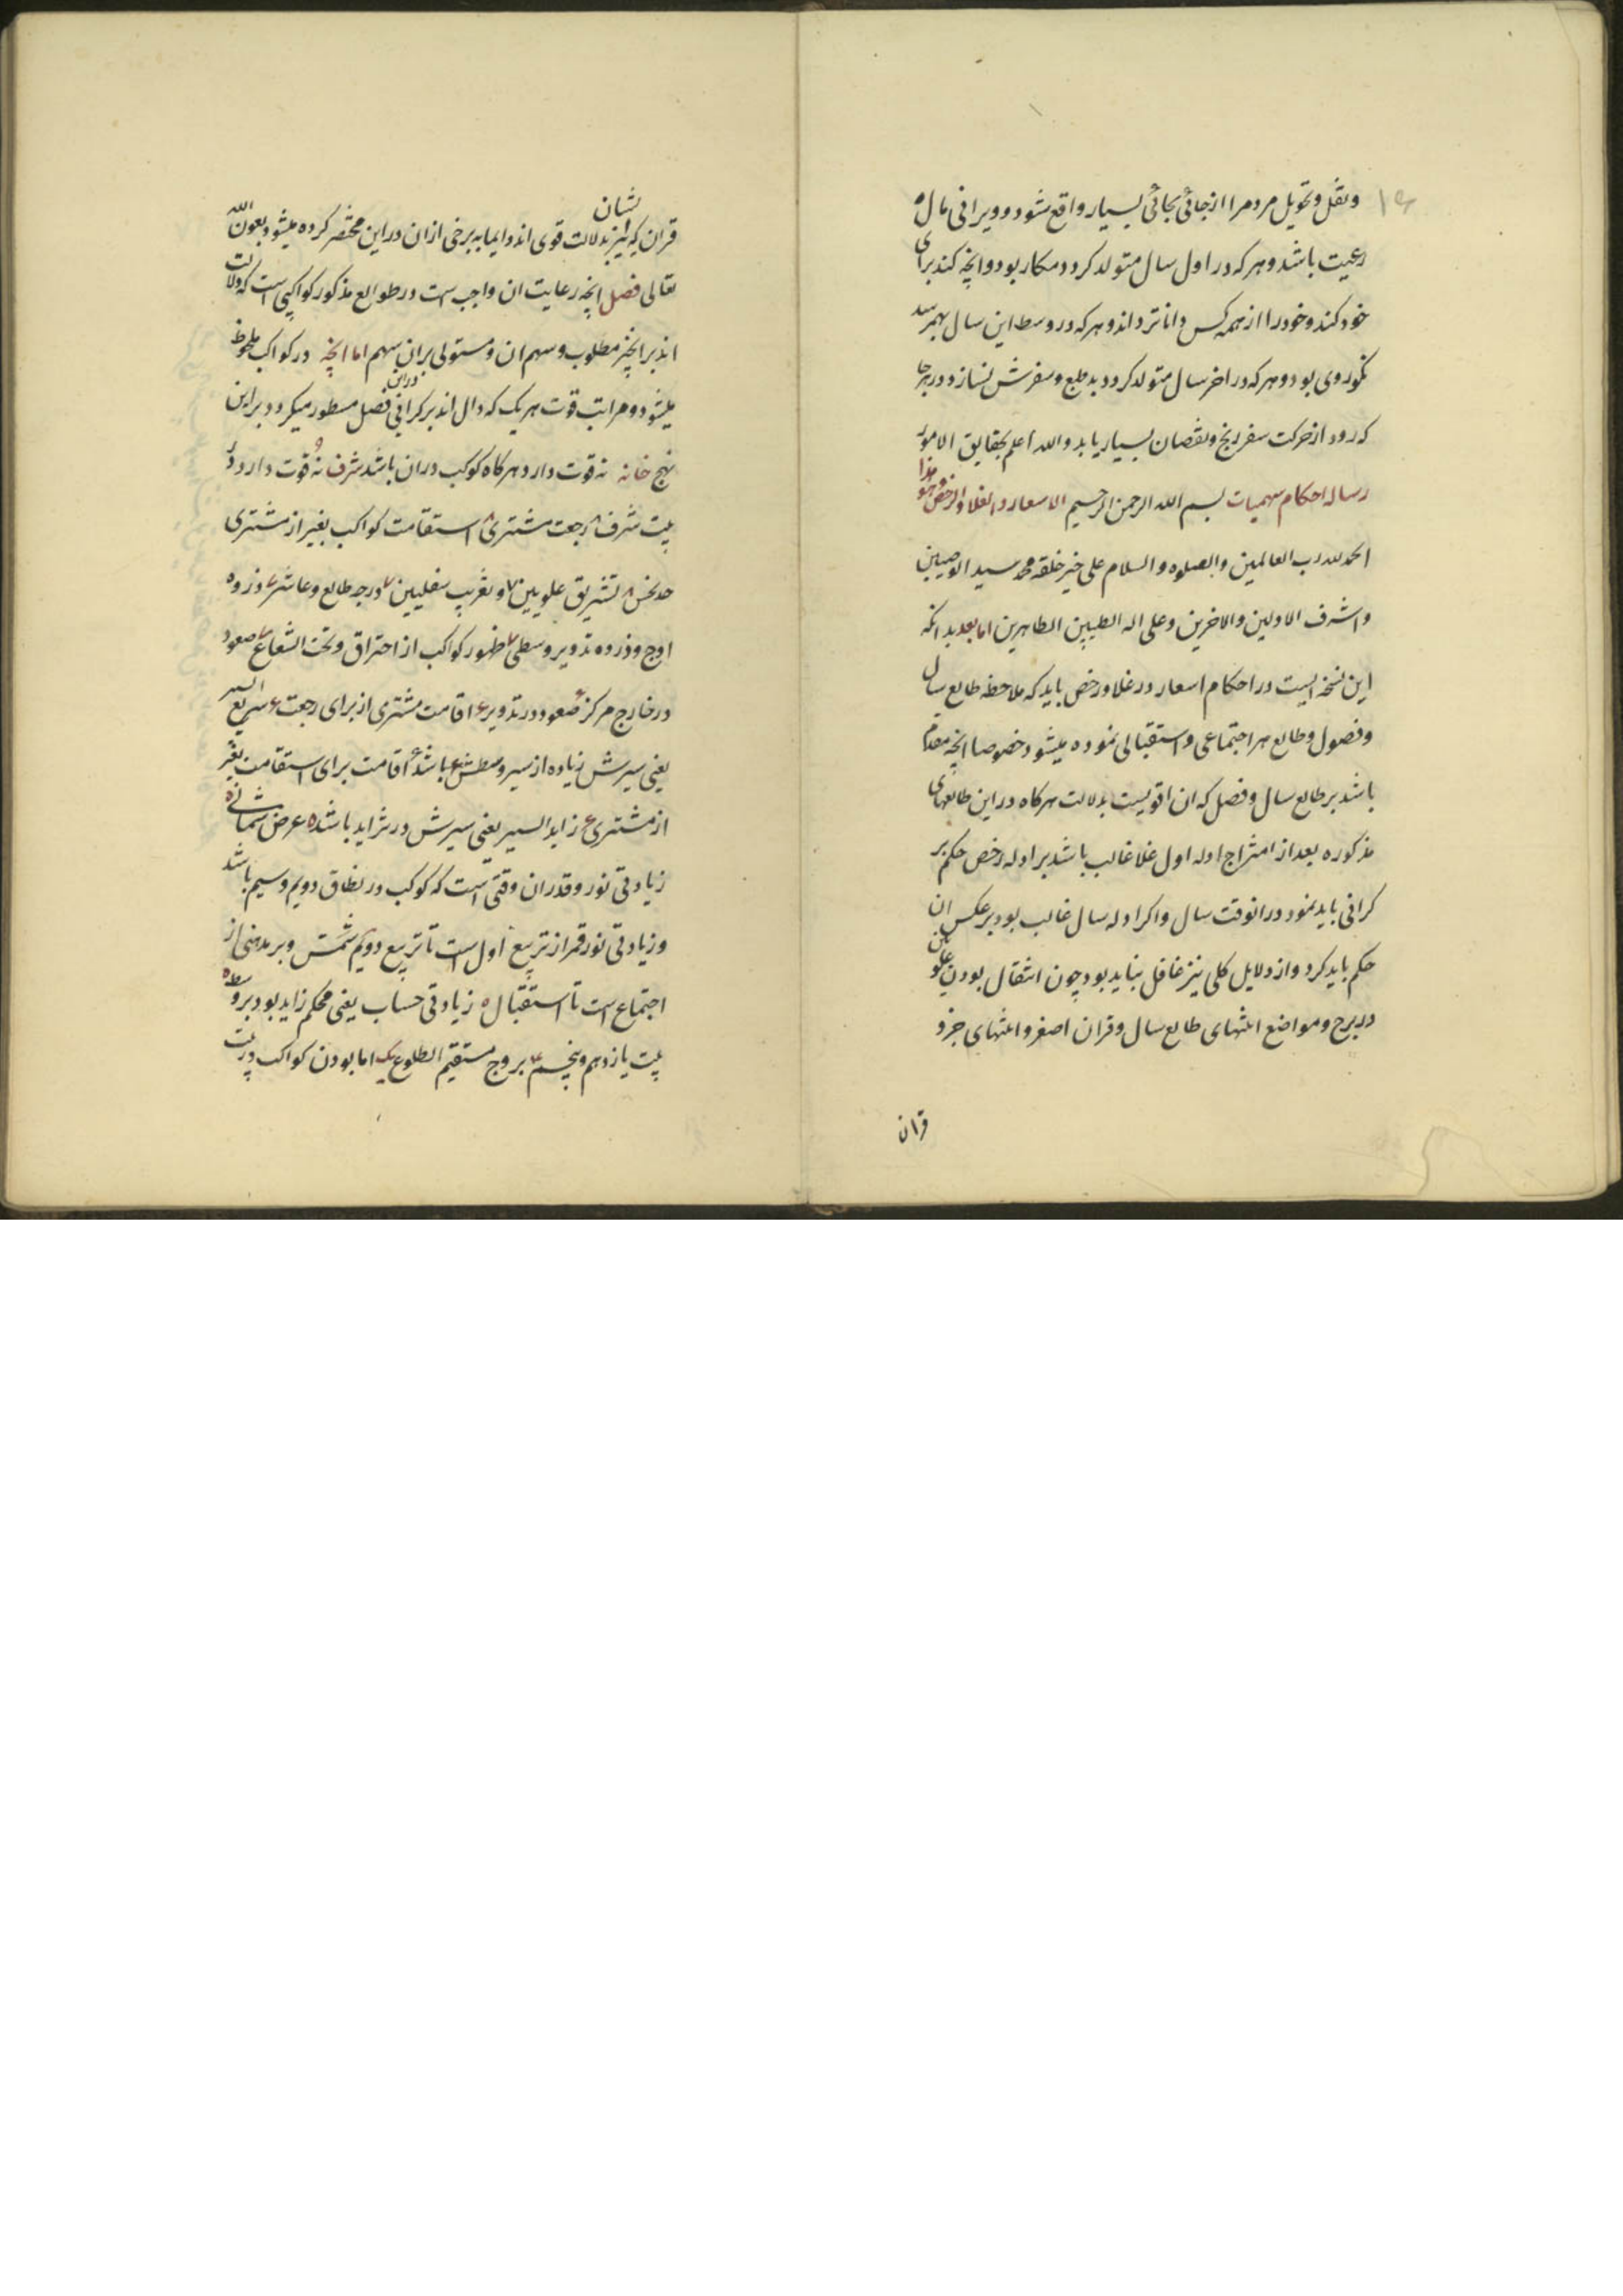 ونقل وتحویل مردمرا از جائی بجائی بسیار واقع شود وویرانی مال
رعیت باشد وهر که در اول سال متولد کردد مکار بود وانچه کند برای
خود کند وخود را از همه کس داناتر داند وهر که در وسط این سال بهمرسد
نکوروی بود وهر که در اخر سال متولد کردد بدطبع وسفرش نسازد ودر هر جا
که رود از حرکت سفر رنج ونقصان بسیار یابد والله اعلم بحقایق الامور
رساله احکام سهمیات بسم الله الرحمن الرحیم الاسعار والغلا والرخص
الحمد لله رب العالمین والصلوه والسلام علی خیر خلقه محمد سید الوصیین
واشرف الاولین والاخرین وعلی اله الطیبین الطاهرین اما بعد بدانکه
این نسخه ایست در احکام اسعار در غلا ورخص باید که ملاحظه طالع سال
وفصول وطالع هر اجتماعی واستقبالی نموده میشود خصوصا انچه مقدم
باشد بر طالع سال وفصل که ان اقویست بدلالت هرکاه در این طالعهای
مذکوره بعد از امتزاج ادله اول غلا غالب باشد بر ادله رخص حکم بر
کرانی باید نمود در انوقت سال واکر ادله سال غالب بود بر عکس ان
حکم باید کرد واز دلایل کلی نیز غافل نباید بود چون انتقال بودن علویان
در برج ومواضع انتهای طالع سال وقران اصغر وانتهای جزو
قران
قران که ایشان نیز بدلالت قوی اند وایما به برخی از ان در این مختصر کرده میشود بعون الله
تعالی فصل انچه رعایت ان واجب است در طوالع مذکور کواکبی است که دلالت
اند بر انچیز مطلوب وسهم ان ومستولی بران سهم اما انچه در کواکب ملحوظ
میشود ومراتب قوت هر یک که دال اند بر کرانی دراین فصل مسطور میکردد براین
نهج خانه نه قوت دارد هرکاه کوکب در ان باشد شرف نه قوت دارد
بیت شرف ۸ رجعت مشتری ۸ استقامت کواکب بغیر از مشتری
حد نحس ۸ تشریق علویین ۷ وتغریب سفلیین ۷ درجه طالع وعاشر ۷ ذروه
اوج وذروه تدویر وسطی ۷ ظهور کواکب از احتراق وتحت الشعاع ۷ صعود
در خارج مرکز صعود در تدویر ۶ اقامت مشتری از برای رجعت ۶ سریع السیر
یعنی سیرش زیاده از سیر وسطش باشد ۶ اقامت برای استقامت بغیر
از مشتری ۶ زاید السیر یعنی سیرش در تزاید باشد ۵ عرض شمالی ۵
زیادتی نور وقدر ان وقتی است که کوکب در نطاق دویم وسیم باشد
وزیادتی نور قمر از تربیع اول است تا تربیع دویم شمس وبر مذهبی از
اجتماع است تا استقبال ۵ زیادتی حساب یعنی محکم زاید بود بر وسط ۵
بیت یازدهم وپنجم ۴ بروج مستقیم الطلوع یک اما بودن کواکب در بیت